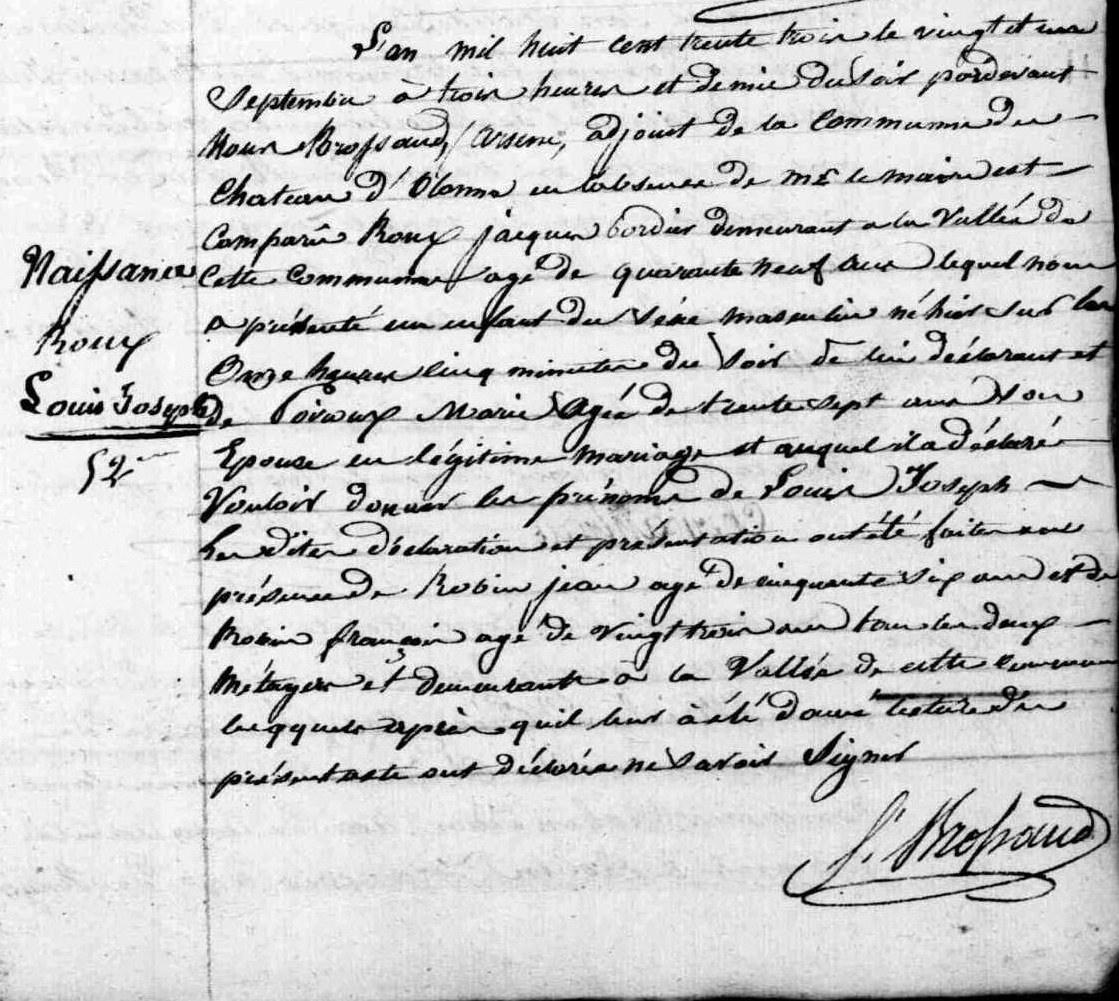 L'an mil huit cent trente trois le vingt et un
Septembre a trois heures et demie du Soir pardevant
Nous Brossaud, Arsene, adjoint de la Commune du
Chateau d'Olonne en labsence de mr le maire est
Comparû Roux jacques bordier demeurant a la Vallée de
Naissance
Cette Commune agé de quarante neuf ans lequel nous
a présenté un enfant du Séxe masculin né hier sur les
Roux
Onze heures cinq minutes du Soir de lui déclarant et
Louis Joseph
de Poiroux Marie Agée de trente sept ans Son
52
Epouse en légitime mariage et auquel il a déclaré
Vouloir donner les prénoms de Louis Joseph
Les dites déclaration et présentation ont été faites en
présence de Robin jean agé de cinquante six ans et de
Robin françois agé de vingt trois ans tous les deux
Métayers et demeurants a la Vallée de cette commune
lesquels après quil leur à été donné lecture du
présent acte ont déclarés ne Savoir Signer
Brossaud